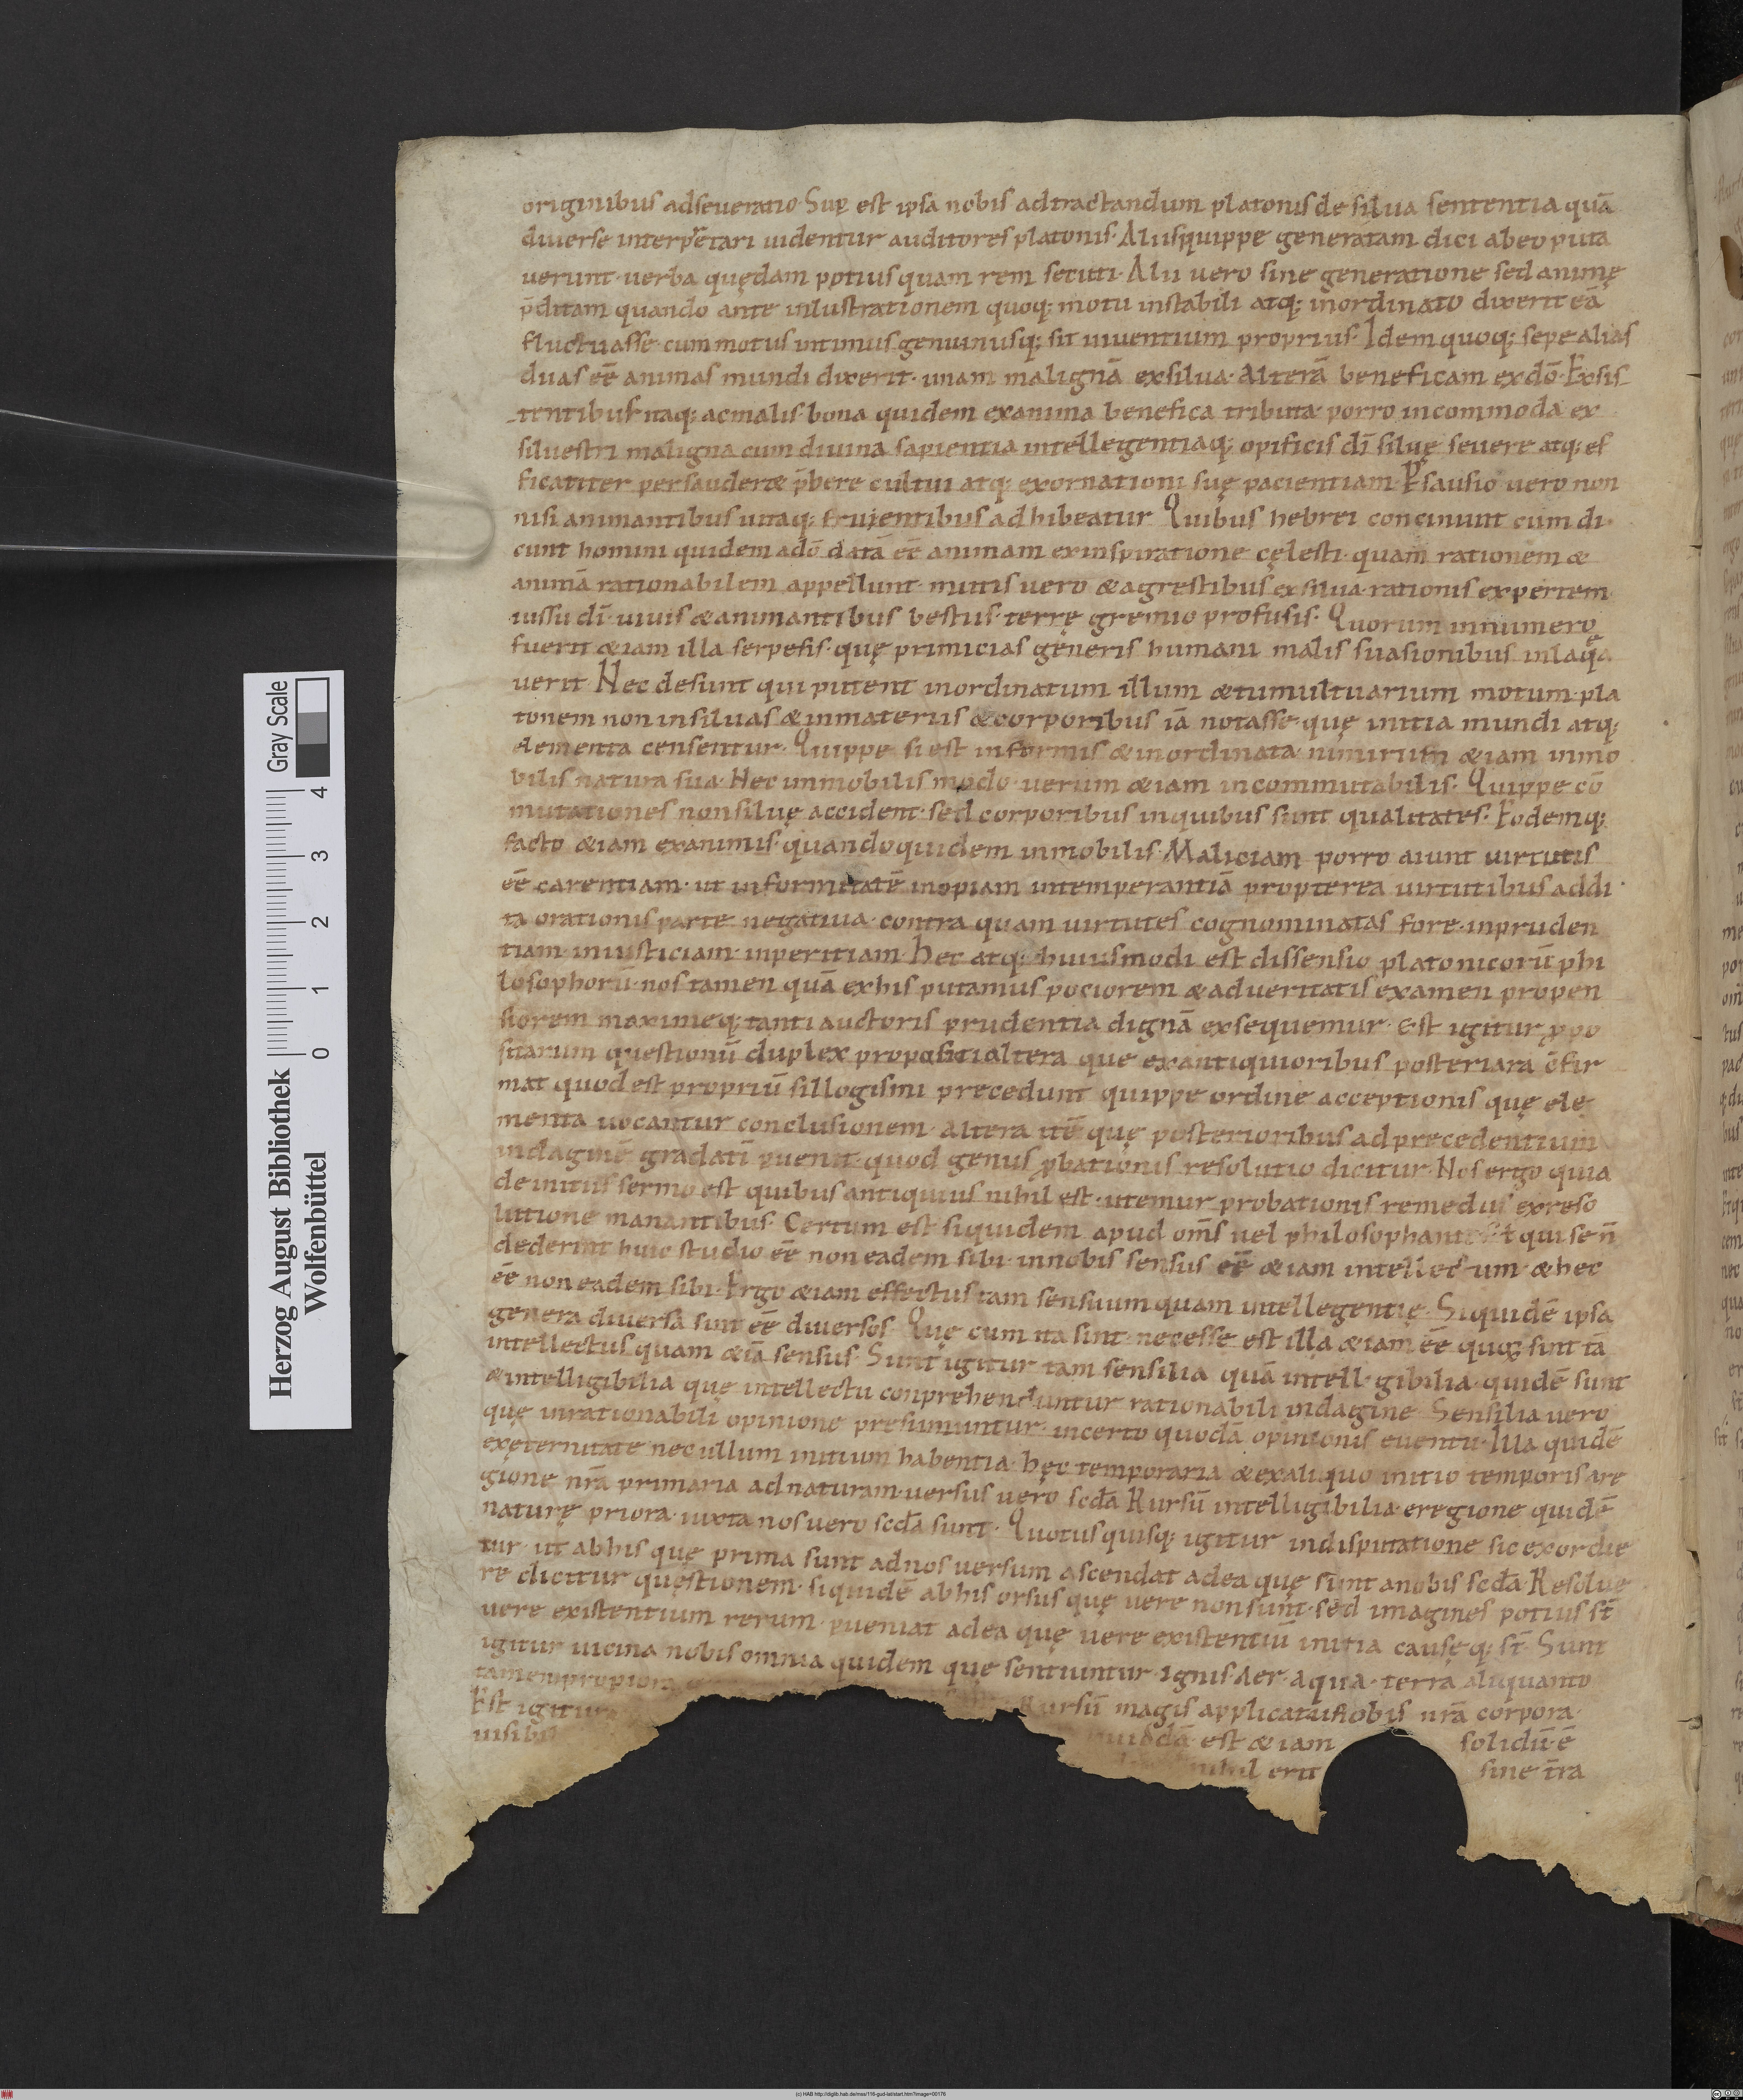 originibus adseueratio· Sup est ipsa nobis adtractandum platonis de silua sententia quā
diuerse interp̄etari uidentur auditores platonis· Aliis quippe generatam dici ab eo puta
uerunt· uerba quędam potius quam rem secuti· Alii uero sine generatione sed animę
p̄ditam quando ante inlustrationem quoq; motu instabili atq; inordinato dixerit eā
fluctuasse· cum motus intimus genuinusq; sit uiuentium proprius· Idem quoq; sepe alias
duas eē animas mundi dixerit· unam malignā ex silua· Alterā beneficam ex dō· Exsis
tentibus itaq; ac malis bona quidem ex anima benefica tributa· porro incommoda ex
siluestri maligna cum diuina sapientia intellegentiaq; opificis dī siluę seuere atq; ef
ficaciter persauderet p̄bere cultui atq; exornationi suę pacientiam· Psausio uero non
nisi animantibus uitaq; fruientibus adhibeatur Quibus hebrei concinunt cum di·
cunt homini quidem a dō datā eē animam ex inspiratione cęlesti· quam rationem &
animā rationabilem appellunt· mutis uero & agrestibus ex silua rationis expertem
iussu dī· uiuis & animantibus bestiis terrę gremio profusis· Quorum in numero
fuerit &iam illa serpe͂s· quę primicias generis humani malis suasionibus inlaque
uerit Nec desunt qui putent inordinatum illum & tumultuarium motum· pla
tonem non in siluas & in materiis & corporibus iā notasse· quę initia mundi atq;
elementa censentur· Quippe si est informis & inordinata· nimirum &iam inmo
bilis natura sua· Nec inmobilis modo· uerum &iam incommutabilis· Quippe cō
mutationes non siluę accident· sed corporibus in quibus sunt qualitates· Eodemq;
facto &iam exanimis· quandoquidem inmobilis· Maliciam porro aiunt uirtutis
eē carentiam· ut informitatē inopiam intemperantiā propterea uirtutibus addi·
ta orationis parte negatiua· contra quam uirtutes cognominatas fore· inpruden
tiam· iniusticiam· inperitiam· Hec atq; huiusmodi est dissensio platonicorū phi
losophorū· nos tamen quā ex his putamus pociorem & ad ueritatis examen propen
siorem maximeq; tanti auctoris prudentia dignā exsequemur· Est igitur ꝓpo
sitarum questionū duplex propositi altera que ex antiquioribus posteriara c̄fir
mat quod est propriū sillogismi precedunt quippe ordine acceptionis quę ele
menta uocantur conclusionem· Altera itē quę posterioribus ad precedentium
indaginē gradatī ꝑuenit· quod genus ꝓbationis resolutio dicitur· Nos ergo quia
de initiis sermo est quibus antiquius nihil est· utemur probationis remediis ex reso
lutione manantibus· Certum est siquidem apud om̄s uel philosophant qui se n̄
dederint huic studio eē non eadem sibi· in nobis sensus eē &iam intellectum· & hec
eē non eadem sibi· Ergo &iam effectus tam sensuum quam intellegentię· Siquidē ipsa
genera diuersa sunt eē diuersos Quę cum ita sint· necesse est illa &iam eē quoꝝ sint tā
intellectus quam &iā sensus· Sunt igitur tam sensilia quā intelligibilia· quidē sunt
& intelligibilia quę intellectu conprehenduntur rationabili indagine Sensilia uero
quę inrationabili opinione presumuntur· incerto quodā opinionis euentu· Illa quidē
ex ęternitate nec ullum initium habentia· hęc temporaria & ex aliquo initio temporis a re
gione nr̄a primaria ad naturam· uersus uero scd̄a Rursū intelligibilia· e regione quidē
naturę priora· iuxta nos uero scd̄a sunt· Quotusquisq; igitur in disputatione sic exordie
tur· ut ab his quę prima sunt ad nos uersum ascendat ad ea quę sunt a nobis scd̄a· Resolue
re dicitur quęstionem· siquidē ab his orsus quę uere non sunt· sed imagines potius st̄
uere existentium rerum· ꝑueniat ad ea quę uere existentiū initia causęq; st̄· Sunt
igitur uicina nobis omnia quidem quę sentiuntur· ignis· Aer· aqua· terra aliquanto
tamen propiora
Est igitur Rursū magis applicatus nobis nr̄a corpora·
uisibil quidā est &iam solidū· ē
nihil erit sine tr̄a
Herzog August Bibliothek
Wolfenbüttel
Gray Scale
0 1 2 3 4
(c) HAB http://diglib.hab.de/mss/116-gud-lat/start.htm?image=00176